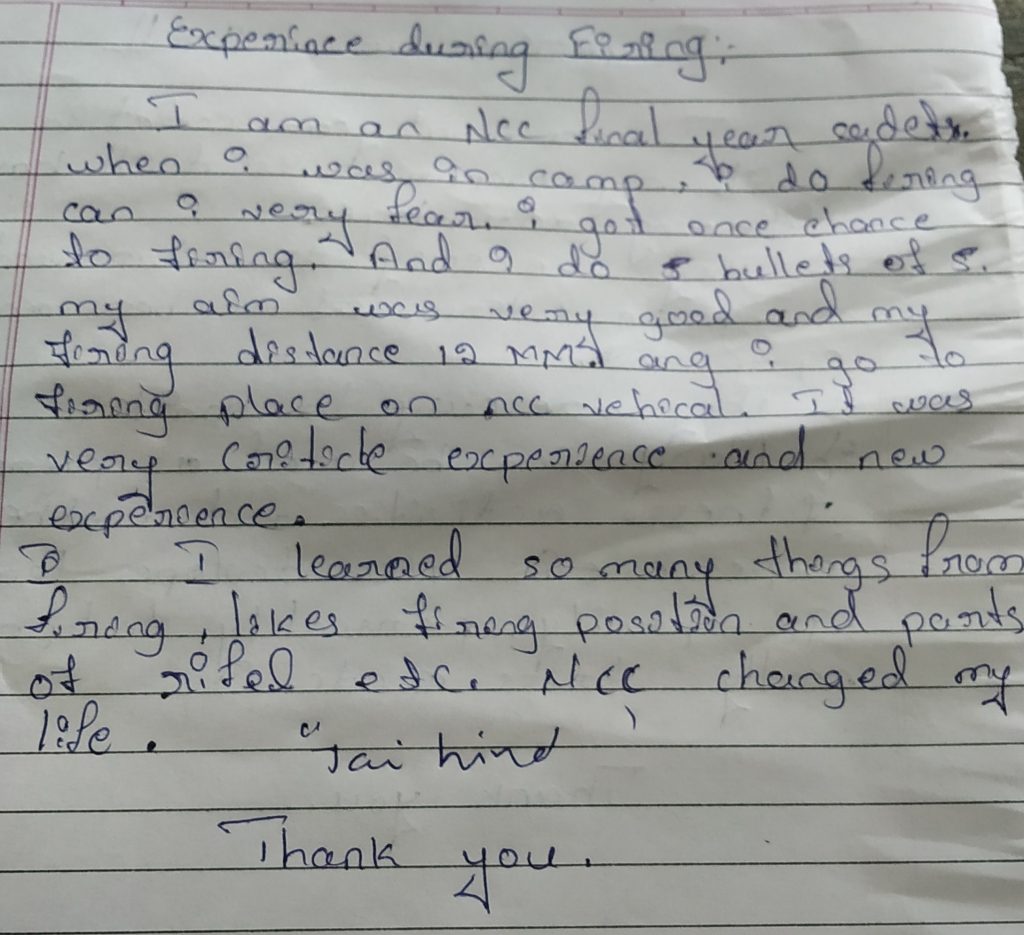 Experiance during Firing:-
I am an Ncc final year cadets.
when i was in camp, to do firing
can i very fear. i got once chance
to firing. And I do 5 bullets of 5.
my aim was very good and my
firing distance 12 MMS ang i go to
firing place on ncc vehical. It was
very experience and new
experience.
I learned so many things from
firing, likes firing position and parts
of rifel etc. NCC changed my
life. "Jai hind"
Thank you.